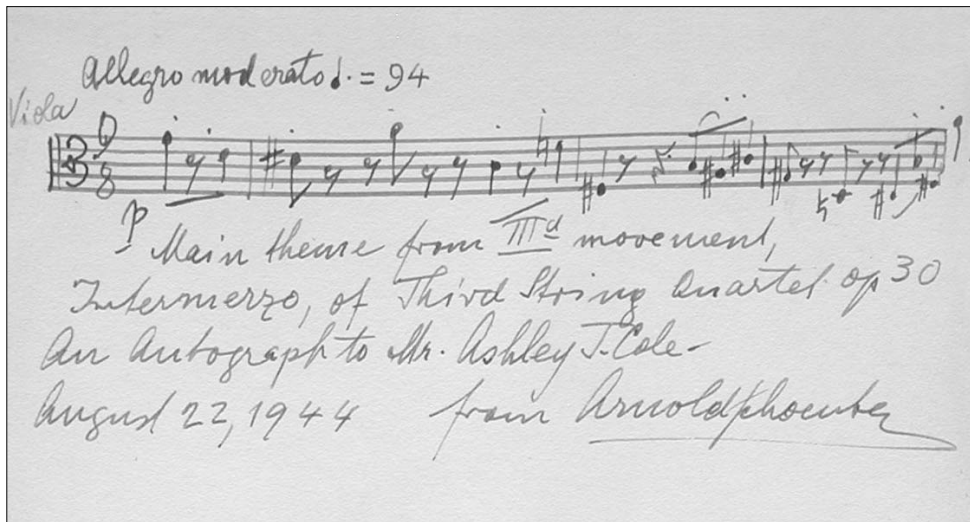 Allegro moderato ♩. = 94
Viola
9
8
p
Main theme from IIId movement,
Intermezzo, of Third String Quartet op 30
An Autograph to Mr. Ashley T. Cole-
August 22, 1944 from Arnold Schoenberg